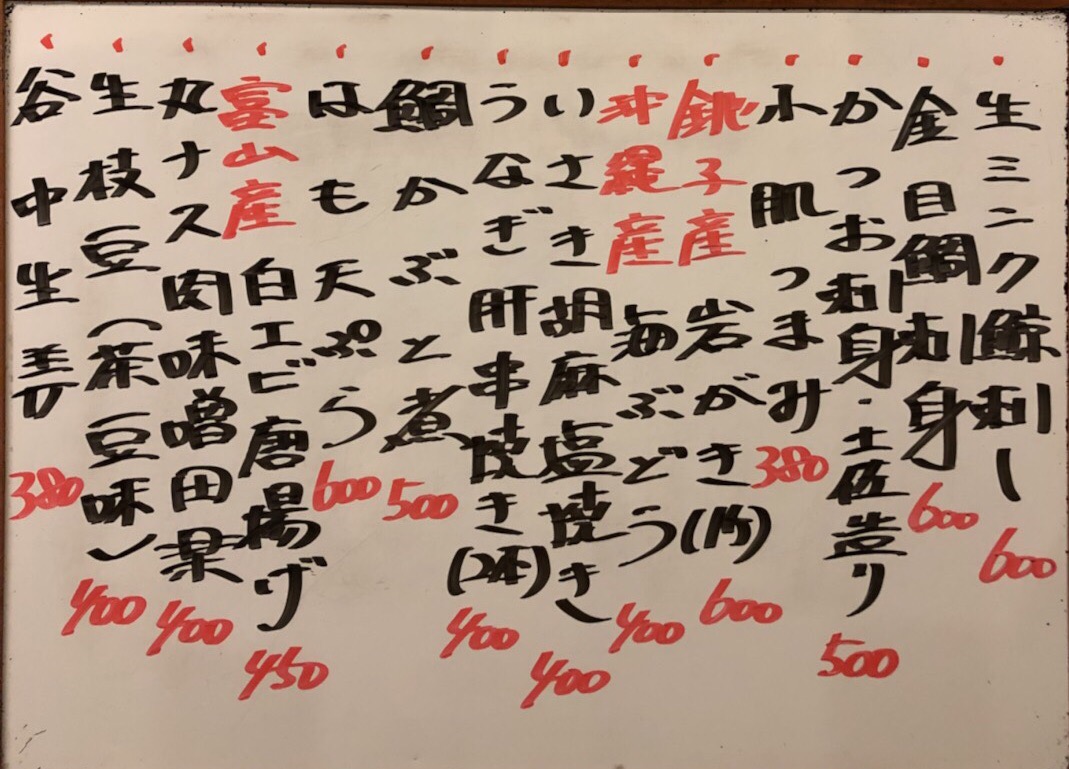 生ミンク鯨刺し 600
金目鯛刺身 600
かつお刺身・土佐造り 500
小肌つまみ 380
銚子産 岩がき(1ケ) 600
沖縄産 海ぶどう 400
いさき胡麻塩焼き 400
うなぎ肝串焼き(2本) 400
鯛かぶと煮 500
はも天ぷら 600
富山産 白エビ唐揚げ 450
丸ナス肉味噌田楽 400
生枝豆(茶豆味) 400
谷中生姜 380